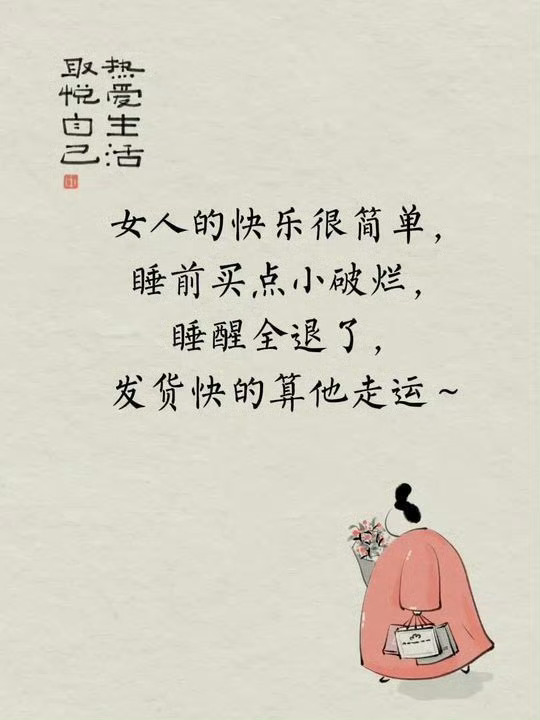 热爱生活
取悦自己
女人的快乐很简单，
睡前买点小破烂，
睡醒全退了，
发货快的算他走运~